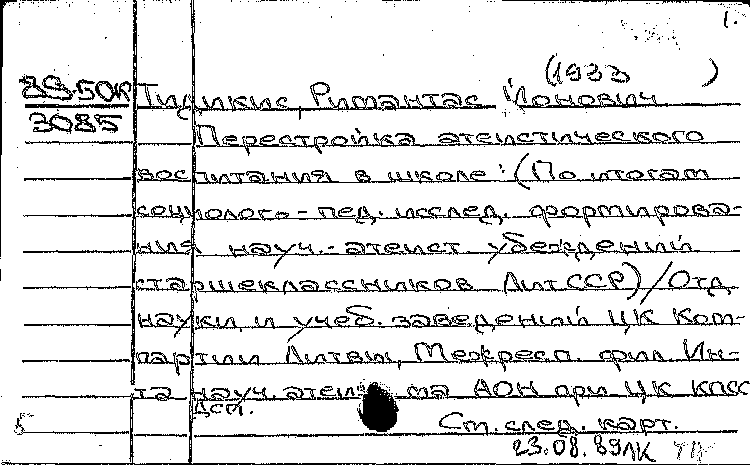 1.
(1933 )
89-5ОК Тидикис, Римантас Йонович
3085 Перестройка атеистического
воспитания в школе : (По итогам
социолого-пед. исслед. формирова-
ния науч.-атеист убеждений
старшеклассников ЛитССР)/Отд.
науки и учеб. заведений ЦК Ком-
партии Литвы, Межресп. фил. Ин-
та науч. атеизма АОН при ЦК КПСС
ДСП.
5 См. след. карт.
23.08.89ЛК